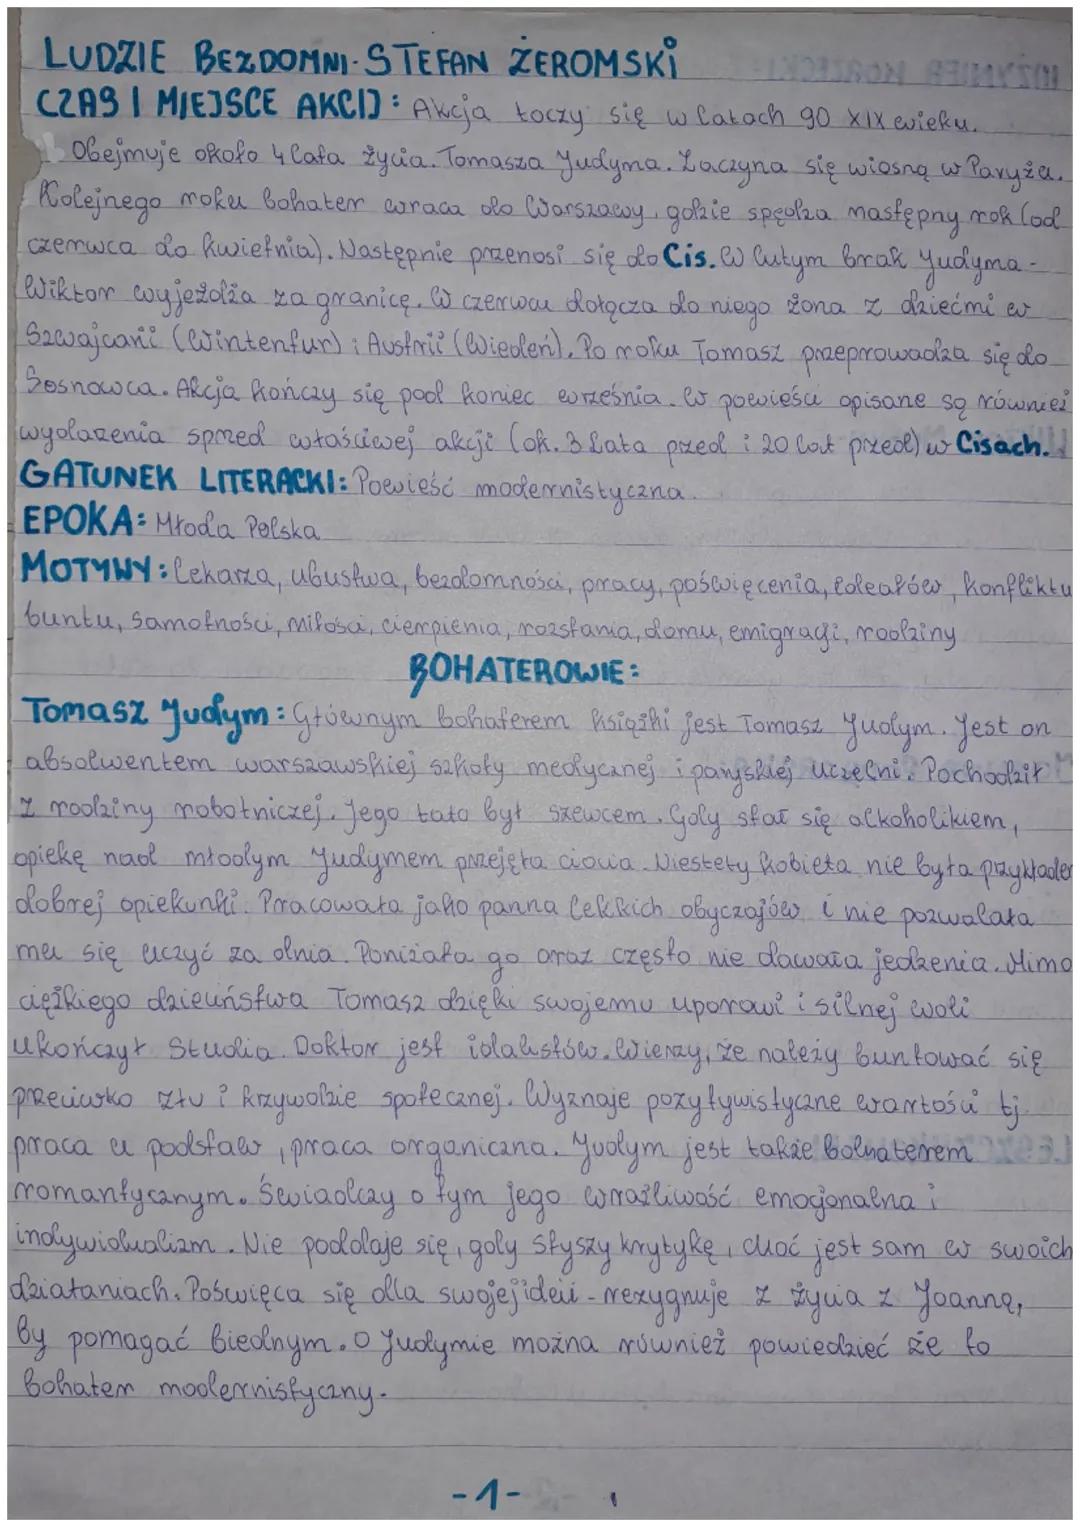 LUDZIE BEZDOMNI - STEFAN ŻEROMSKI
CZAS I MIEJSCE AKCJI: Akcja toczy się w latach 90 XIX wieku.
Obejmuje około 4 lata życia Tomasza Judyma. Zaczyna się wiosną w Paryżu.
Kolejnego roku bohater wraca do Warszawy, gdzie spędza następny rok (od
czerwca do kwietnia). Następnie przenosi się do Cis. W lutym brak Judyma -
Wiktor wyjeżdża za granicę. W czerwcu dołącza do niego żona z dziećmi w
Szwajcarii (Wintenfur) i Austrii (Wiedeń). Po roku Tomasz przeprowadza się do
Sosnowca. Akcja kończy się pod koniec września. W powieści opisane są również
wydarzenia sprzed właściwej akcji (ok. 3 lata przed i 20 lat przed) w Cisach.
GATUNEK LITERACKI: Powieść modernistyczna.
EPOKA: Młoda Polska
MOTYWY: lekarza, ubóstwa, bezdomności, pracy, poświęcenia, ideałów, konfliktu
buntu, samotności, miłości, cierpienia, rozstania, domu, emigracji, rodziny
BOHATEROWIE:
Tomasz Judym: Głównym bohaterem książki jest Tomasz Judym. Jest on
absolwentem warszawskiej szkoły medycznej i paryskiej uczelni. Pochodził
z rodziny robotniczej. Jego tato był szewcem. Gdy stał się alkoholikiem,
opiekę nad młodym Judymem przejęła ciocia. Niestety kobieta nie była przykładem
dobrej opiekunki. Pracowała jako panna lekkich obyczajów i nie pozwalała
mu się uczyć za dnia. Poniżała go oraz często nie dawała jedzenia. Mimo
ciężkiego dzieciństwa Tomasz dzięki swojemu uporowi i silnej woli
ukończył studia. Doktor jest idalistów. Wierzy, że należy buntować się
przeciwko złu i krzywdzie społecznej. Wyznaje pozytywistyczne wartości tj.
praca u podstaw, praca organiczna. Judym jest także bohaterem
romantycznym. Świadczy o tym jego wrażliwość emocjonalna i
indywidualizm. Nie poddaje się, gdy słyszy krytykę, choć jest sam w swoich
działaniach. Poświęca się dla swojej ideii - rezygnuje z życia z Joanną,
by pomagać biednym. O Judymie można również powiedzieć że to
bohater modernistyczny.
-1-